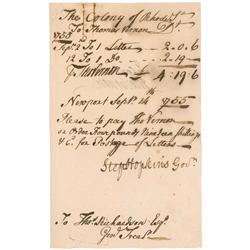 The Colony of Rhode Isd Dr
To Thomas Vernon
1755
Sept 2 To 1 Letter - 2..0..6
12 To 1 Do - 2..19..
£4..19..6
Newport Septr 14th 1755
Please to pay Tho Vernon
or Order Four pounds Nineteen shillings
& 6d for Postage of Letters
Step Hopkins Govr
To Thos Richardson Esqr
Genl Treasr